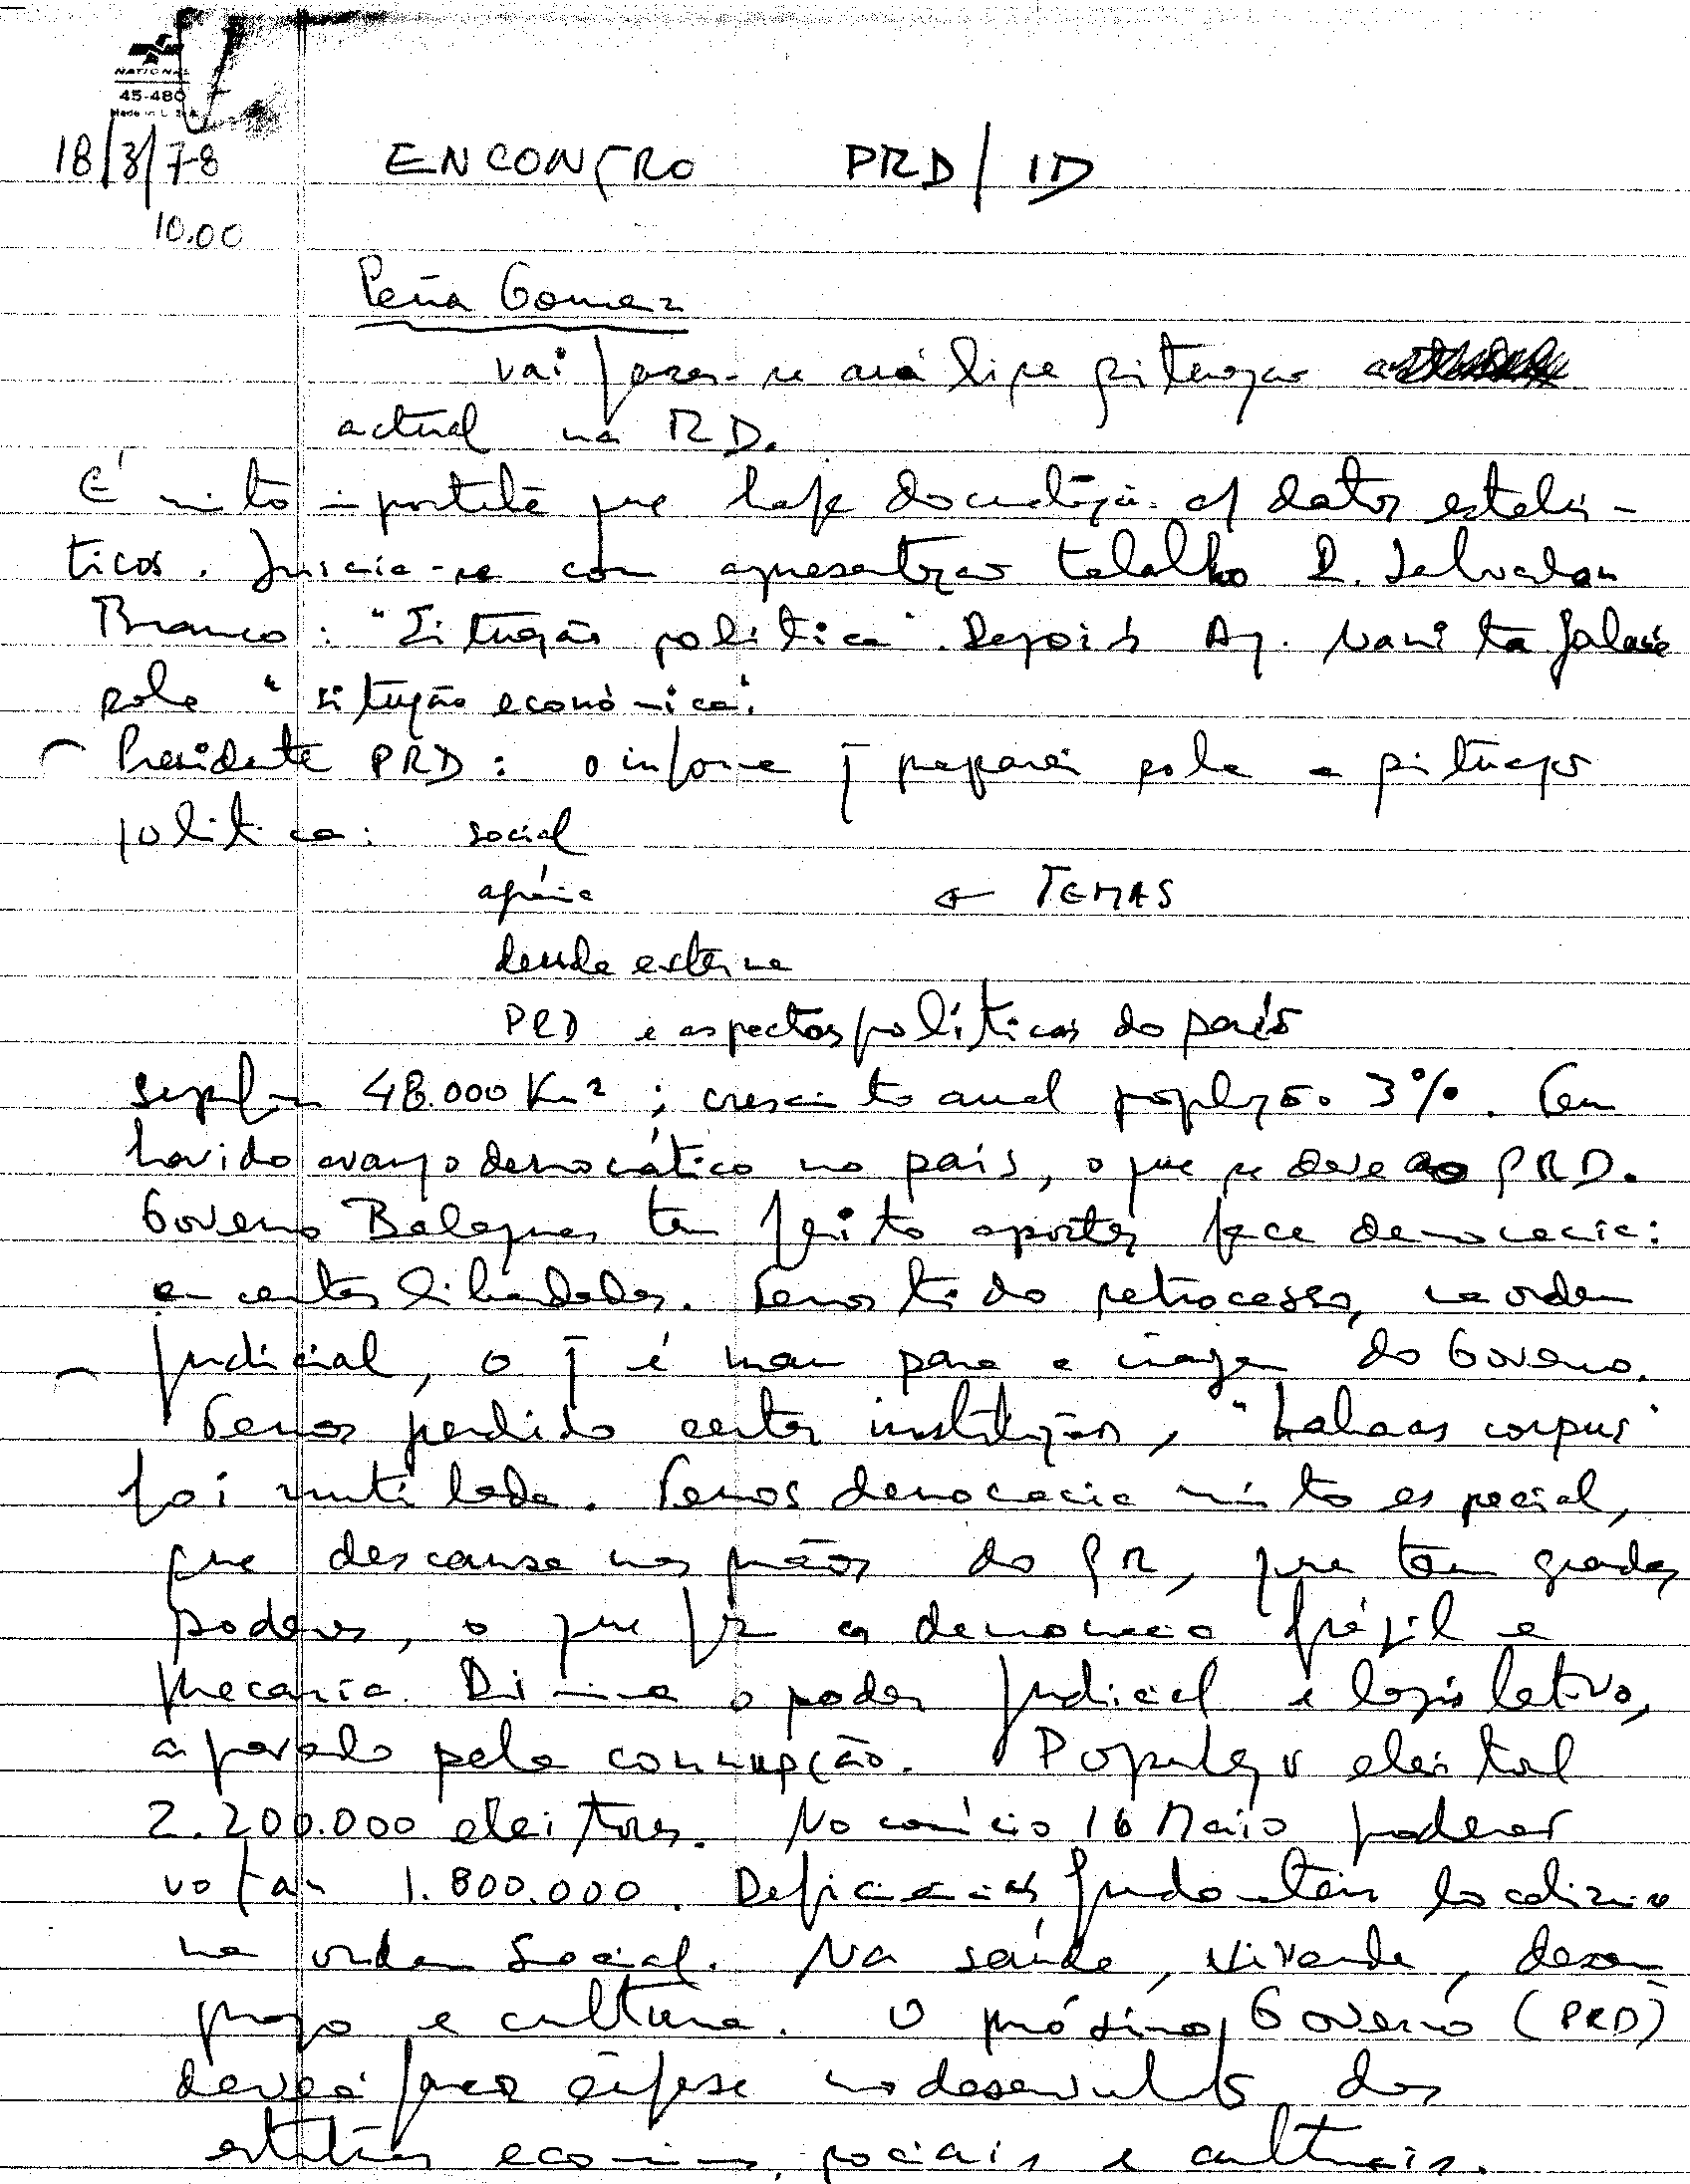 NATIONAL
45-480
Made in U.S.A.
18/3/78 ENCONTRO PRD/ID
10.00
Peña Gomez
vai fazer-se análise situação
actual na RD.
É muito importante que haja documentação c/ datos estatís-
ticos. Inicia-se com apresentação trabalho D. Salvador
Branco: "Situação política". Depois falará
sobre "situação económica".
Presidente PRD: o informe q̄ preparei sobre a situação
política: social
agrária ← TEMAS
deuda externa
PRD e aspectos políticos do país
48.000 Km²; crescimento anual população 3%. Tem
havido avanço democrático no país, o que se deve ao PRD.
Governo Balaguer tem feito aportes face democracia:
em certas liberdades. Temos tido retrocesso, na ordem
judicial, o q̄ é mau para a imagem do Governo.
Temos perdido certas instituições, "habeas corpus"
foi mutilada. Temos democracia muito especial,
que descansa nas mãos do PR, que tem grandes
poderes, o que faz a democracia frágil e
precária. Domina o poder judicial e legislativo,
agravado pela corrupção. População eleitoral
2.200.000 eleitores. No comício 16 Maio poderão
votar 1.800.000. Deficiências fundamentais localizam-se
na ordem Social. Na saúde, vivenda, desem-
prego e cultura. O próximo Governo (PRD)
deverá fazer ênfase no desenvolvimento das
estruturas económicas, sociais e culturais.